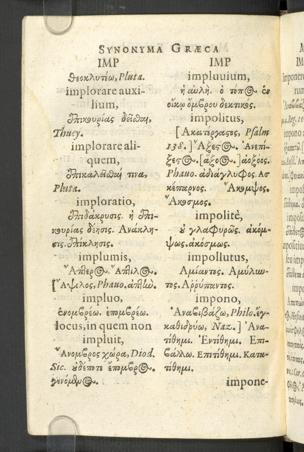 SYNONYMA GRÆCA
IMP
Θεοκλυτίω, Pluta.
implorare auxi-
lium,
ἐπικουρίας δεῖσθαι,
Thucy.
implorare ali-
quem,
ἐπικαλεῖσθαί τινα.
Pluta.
imploratio,
ἐπιδάκρυσις. ἡ ἐπι-
κουρίας δέησις. Ἀνάκλη-
σις. ἐπίκλησις.
implumis,
Ἄπτερος. Ἄπτιλος.
[Ἄψιλος, Phauo.
impluo,
ἐνομβρέω. ἐπομβρέω.
locus, in quem non
impluit,
Ἄνομβρος χώρα, Diod.
Sic. ἔπομβρος.
γενόμενος.
IMP
impluuium,
ἡ αὐλή. ὁ τόπος ἐν
οἴκῳ ὄμβρου δεκτικός.
impolitus,
[Ἀκατέργαστος, Psalm
138.] Ἄξεστος. Ἀνεπί-
ξεστος. [ἄξοος.]
Phauo. ἀδιάγλυφος. Ἀσ-
κέπαρνος. Ἄκομψος.
Ἄκοσμος.
impolitè,
οὐ γλαφυρῶς. ἀκόμ-
ψως. ἀκόσμως.
impollutus,
Ἀμίαντος. Ἀμόλυν-
τος. Ἀρρύπαντος.
impono,
Ἀναβιβάζω, Philo. ἐγ-
καθιδρύω, Naz.] Ἀνα-
τίθημι. Ἐντίθημι. Ἐπι-
βάλλω. Ἐπιτίθημι. Κατα-
τίθημι.
impone-